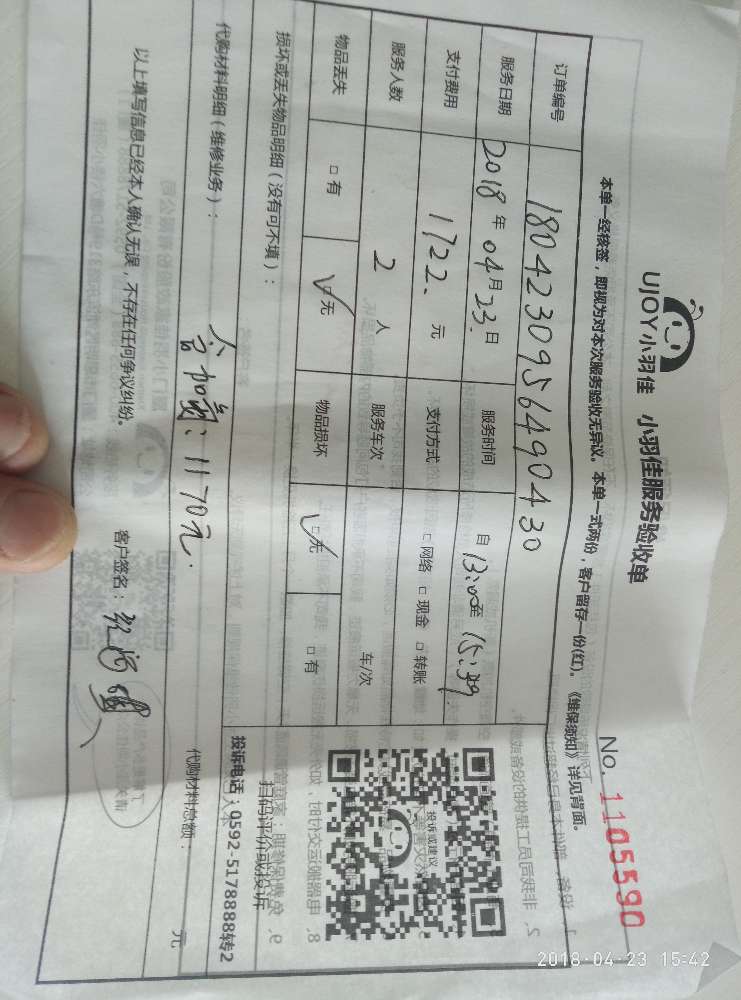 UJOY小羽佳 小羽佳服务验收单
No. 1105590
本单一经核签，即视为对本次服务验收无异议。本单一式两份，客户留存一份(红)。《维保须知》详见背面。
订单编号 1804230956490430
服务日期 2018年04月23日 服务时间 自13:00至15:39
支付费用 1722.元 支付方式 □网络 □现金 □转账
服务人数 2人 服务车次 车/次
物品丢失 □有 □无 物品损坏 □无 □有
损坏或丢失物品明细（没有可不填）：
投诉或建议
扫码评价或投诉
投诉电话：0592-5178888转2
代购材料明细（维修业务）：
含加氟：1170元.
代购材料总额： 元
以上填写信息已经本人确认无误，不存在任何争议纠纷。
客户签名：
2018-04-23 15:42